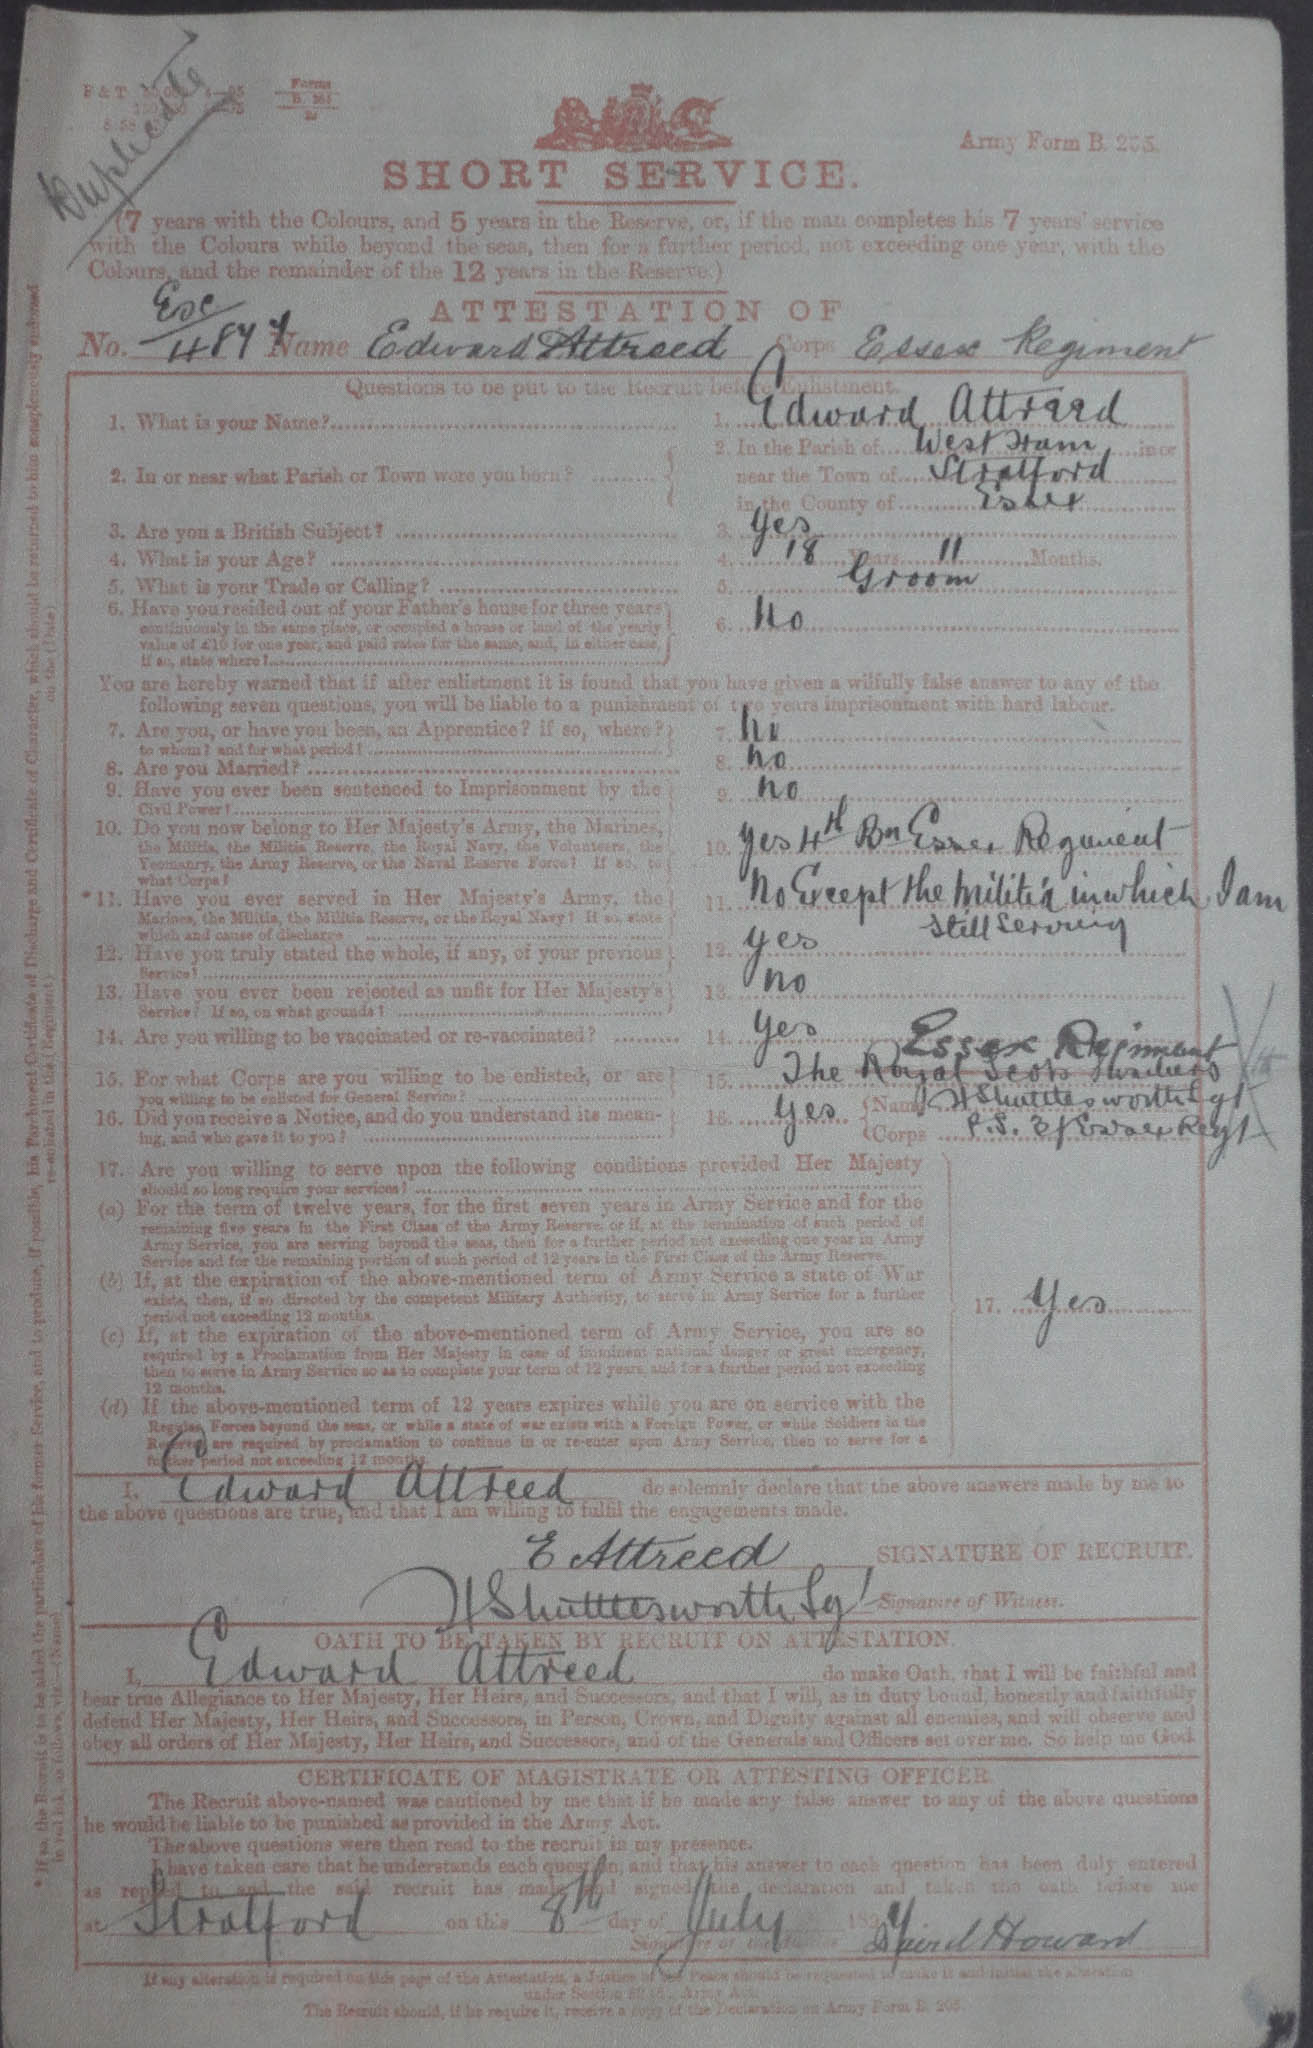 Duplicate
Forms
B. 205
Army Form B. 205.
SHORT SERVICE.
(7 years with the Colours, and 5 years in the Reserve, or, if the man completes his 7 years' service
with the Colours while beyond the seas, then for a further period, not exceeding one year, with the
Colours, and the remainder of the 12 years in the Reserve.)
ATTESTATION OF
No. Name Edward Attreed Corps Essex Regiment
Questions to be put to the Recruit before Enlistment.
1. What is your Name? 1. Edward Attreed
2. In or near what Parish or Town were you born? 2. In the Parish of West Ham in or
near the Town of Stratford
in the County of Essex
3. Are you a British Subject? 3. Yes
4. What is your Age? 4. 18 Years 11 Months.
5. What is your Trade or Calling? 5. Groom
6. Have you resided out of your Father's house for three years
continuously in the same place, or occupied a house or land of the yearly
value of £10 for one year, and paid rates for the same, and, in either case,
if so, state where? 6. No
You are hereby warned that if after enlistment it is found that you have given a wilfully false answer to any of the
following seven questions, you will be liable to a punishment of two years imprisonment with hard labour.
7. Are you, or have you been, an Apprentice? if so, where?
to whom? and for what period? 7. No
8. Are you Married? 8. No
9. Have you ever been sentenced to Imprisonment by the
Civil Power? 9. No
10. Do you now belong to Her Majesty's Army, the Marines,
the Militia, the Militia Reserve, the Royal Navy, the Volunteers, the
Yeomanry, the Army Reserve, or the Naval Reserve Force? If so, to
what Corps? 10. Yes 4th Bn Essex Regiment
*11. Have you ever served in Her Majesty's Army, the
Marines, the Militia, the Militia Reserve, or the Royal Navy? If so, state
which and cause of discharge 11. No Except the Militia in which I am
still Serving
12. Have you truly stated the whole, if any, of your previous
Service? 12. Yes
13. Have you ever been rejected as unfit for Her Majesty's
Service? If so, on what grounds? 13. No
14. Are you willing to be vaccinated or re-vaccinated? 14. Yes
Essex Regiment
15. For what Corps are you willing to be enlisted, or are
you willing to be enlisted for General Service? 15. The Royal Scots Fusiliers
16. Did you receive a Notice, and do you understand its mean-
ing, and who gave it to you? 16. Yes Name H Shuttlesworth Sgt
Corps P.S. 3/Essex Regt
17. Are you willing to serve upon the following conditions provided Her Majesty
should so long require your services?
(a) For the term of twelve years, for the first seven years in Army Service and for the
remaining five years in the First Class of the Army Reserve, or if, at the termination of such period of
Army Service, you are serving beyond the seas, then for a further period not exceeding one year in Army
Service and for the remaining portion of such period of 12 years in the First Class of the Army Reserve.
(b) If, at the expiration of the above-mentioned term of Army Service a state of War
exists, then, if so directed by the competent Military Authority, to serve in Army Service for a further
period not exceeding 12 months.
17. Yes
(c) If, at the expiration of the above-mentioned term of Army Service, you are so
required by a Proclamation from Her Majesty in case of imminent national danger or great emergency,
then to serve in Army Service so as to complete your term of 12 years, and for a further period not exceeding
12 months.
(d) If the above-mentioned term of 12 years expires while you are on service with the
Regular Forces beyond the seas, or while a state of war exists with a Foreign Power, or while Soldiers in the
Reserve are required by proclamation to continue in or re-enter upon Army Service, then to serve for a
further period not exceeding 12 months.
I, Edward Attreed do solemnly declare that the above answers made by me to
the above questions are true, and that I am willing to fulfil the engagements made.
E Attreed SIGNATURE OF RECRUIT.
H Shuttlesworth Sgt Signature of Witness.
OATH TO BE TAKEN BY RECRUIT ON ATTESTATION.
I, Edward Attreed do make Oath, that I will be faithful and
bear true Allegiance to Her Majesty, Her Heirs, and Successors, and that I will, as in duty bound, honestly and faithfully
defend Her Majesty, Her Heirs, and Successors, in Person, Crown, and Dignity against all enemies, and will observe and
obey all orders of Her Majesty, Her Heirs, and Successors, and of the Generals and Officers set over me. So help me God.
CERTIFICATE OF MAGISTRATE OR ATTESTING OFFICER.
The Recruit above-named was cautioned by me that if he made any false answer to any of the above questions
he would be liable to be punished as provided in the Army Act.
The above questions were then read to the recruit in my presence.
I have taken care that he understands each question, and that his answer to each question has been duly entered
as replied to, and the said recruit has made and signed the declaration and taken the oath before me
at Stratford on this 8th day of July 189
Howard
If any alteration is required on this page of the Attestation, a Justice of the Peace should be requested to make it and initial the alteration
under Section Army Act.
The Recruit should, if he require it, receive a copy of the Declaration on Army Form B. 205.
*If so, the Recruit is to be asked the particulars of his former Service, and to produce, if possible, his Parchment Certificate of Discharge and Certificate of Character, which should be returned to him conspicuously endorsed
in red ink, as follows, viz.—(Name) re-enlisted in the (Regiment) on the (Date)